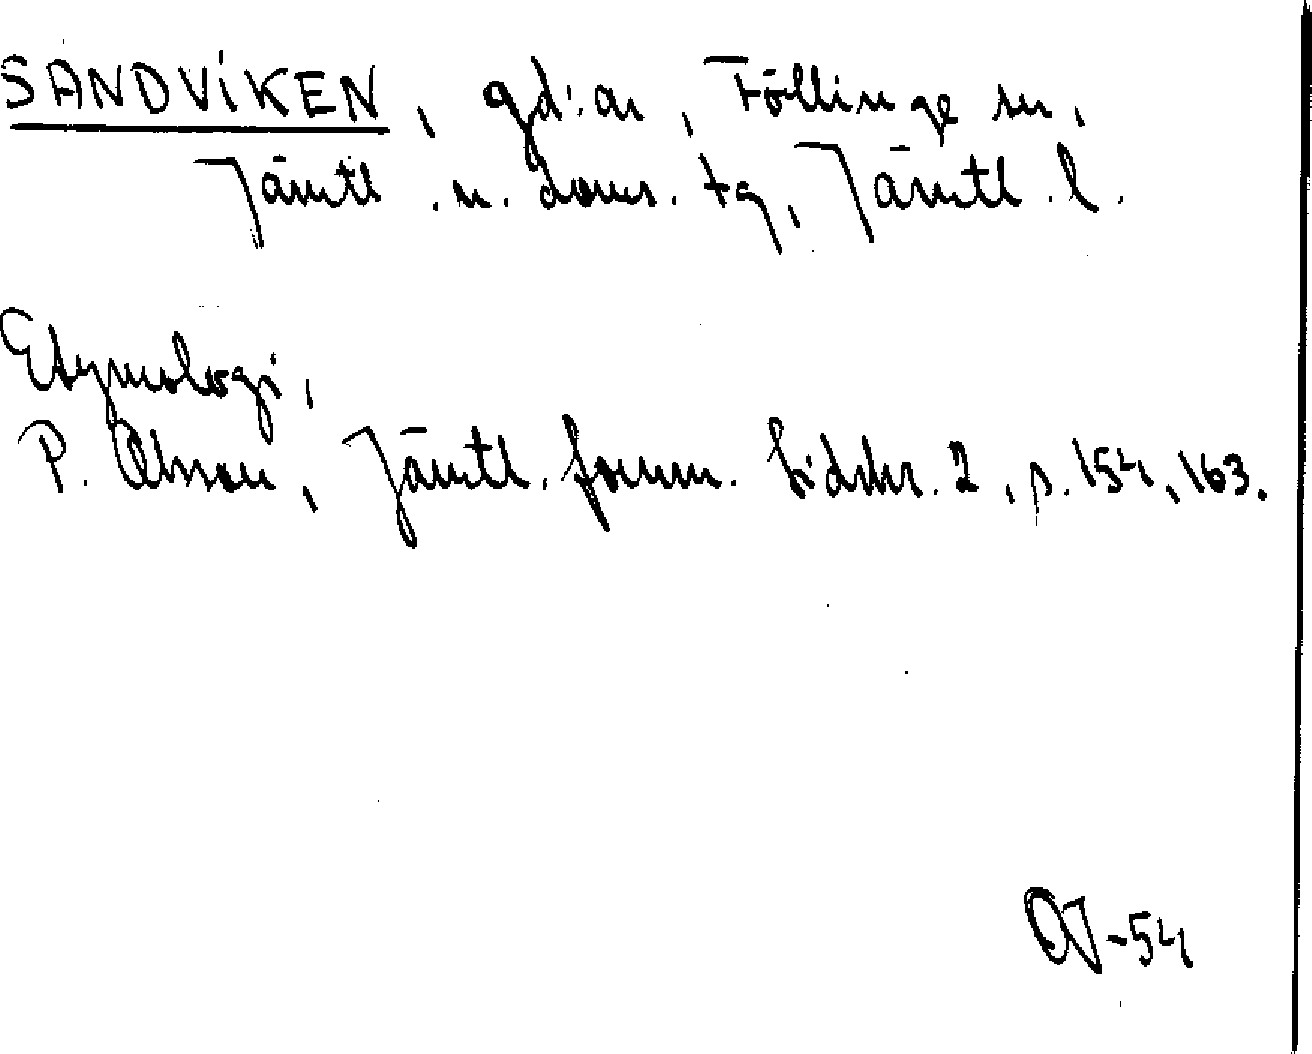 SANDVIKEN, gd:ar, Föllinge sn,
Jämtl. n. doms. tg, Jämtl. l.
Etymologi,
P. Olsson, Jämtl. fornm. tidskr. 2, s. 154, 163.
OJ-54